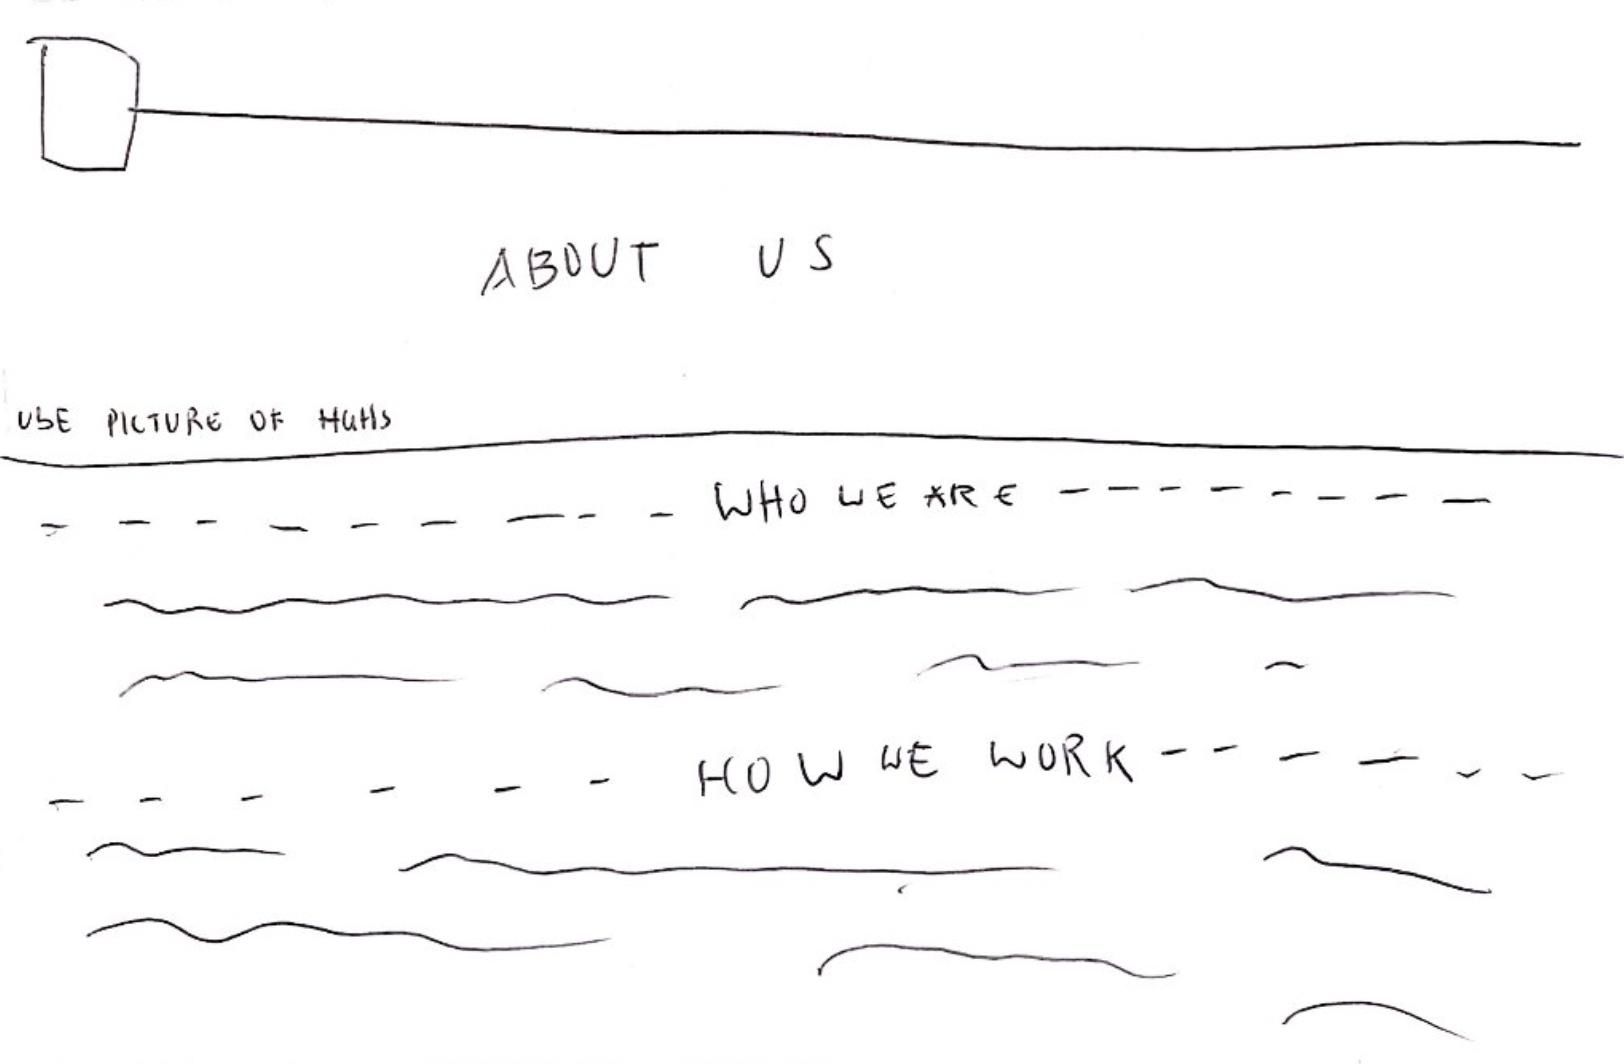 ABOUT US
USE PICTURE OF
WHO WE ARE
HOW WE WORK